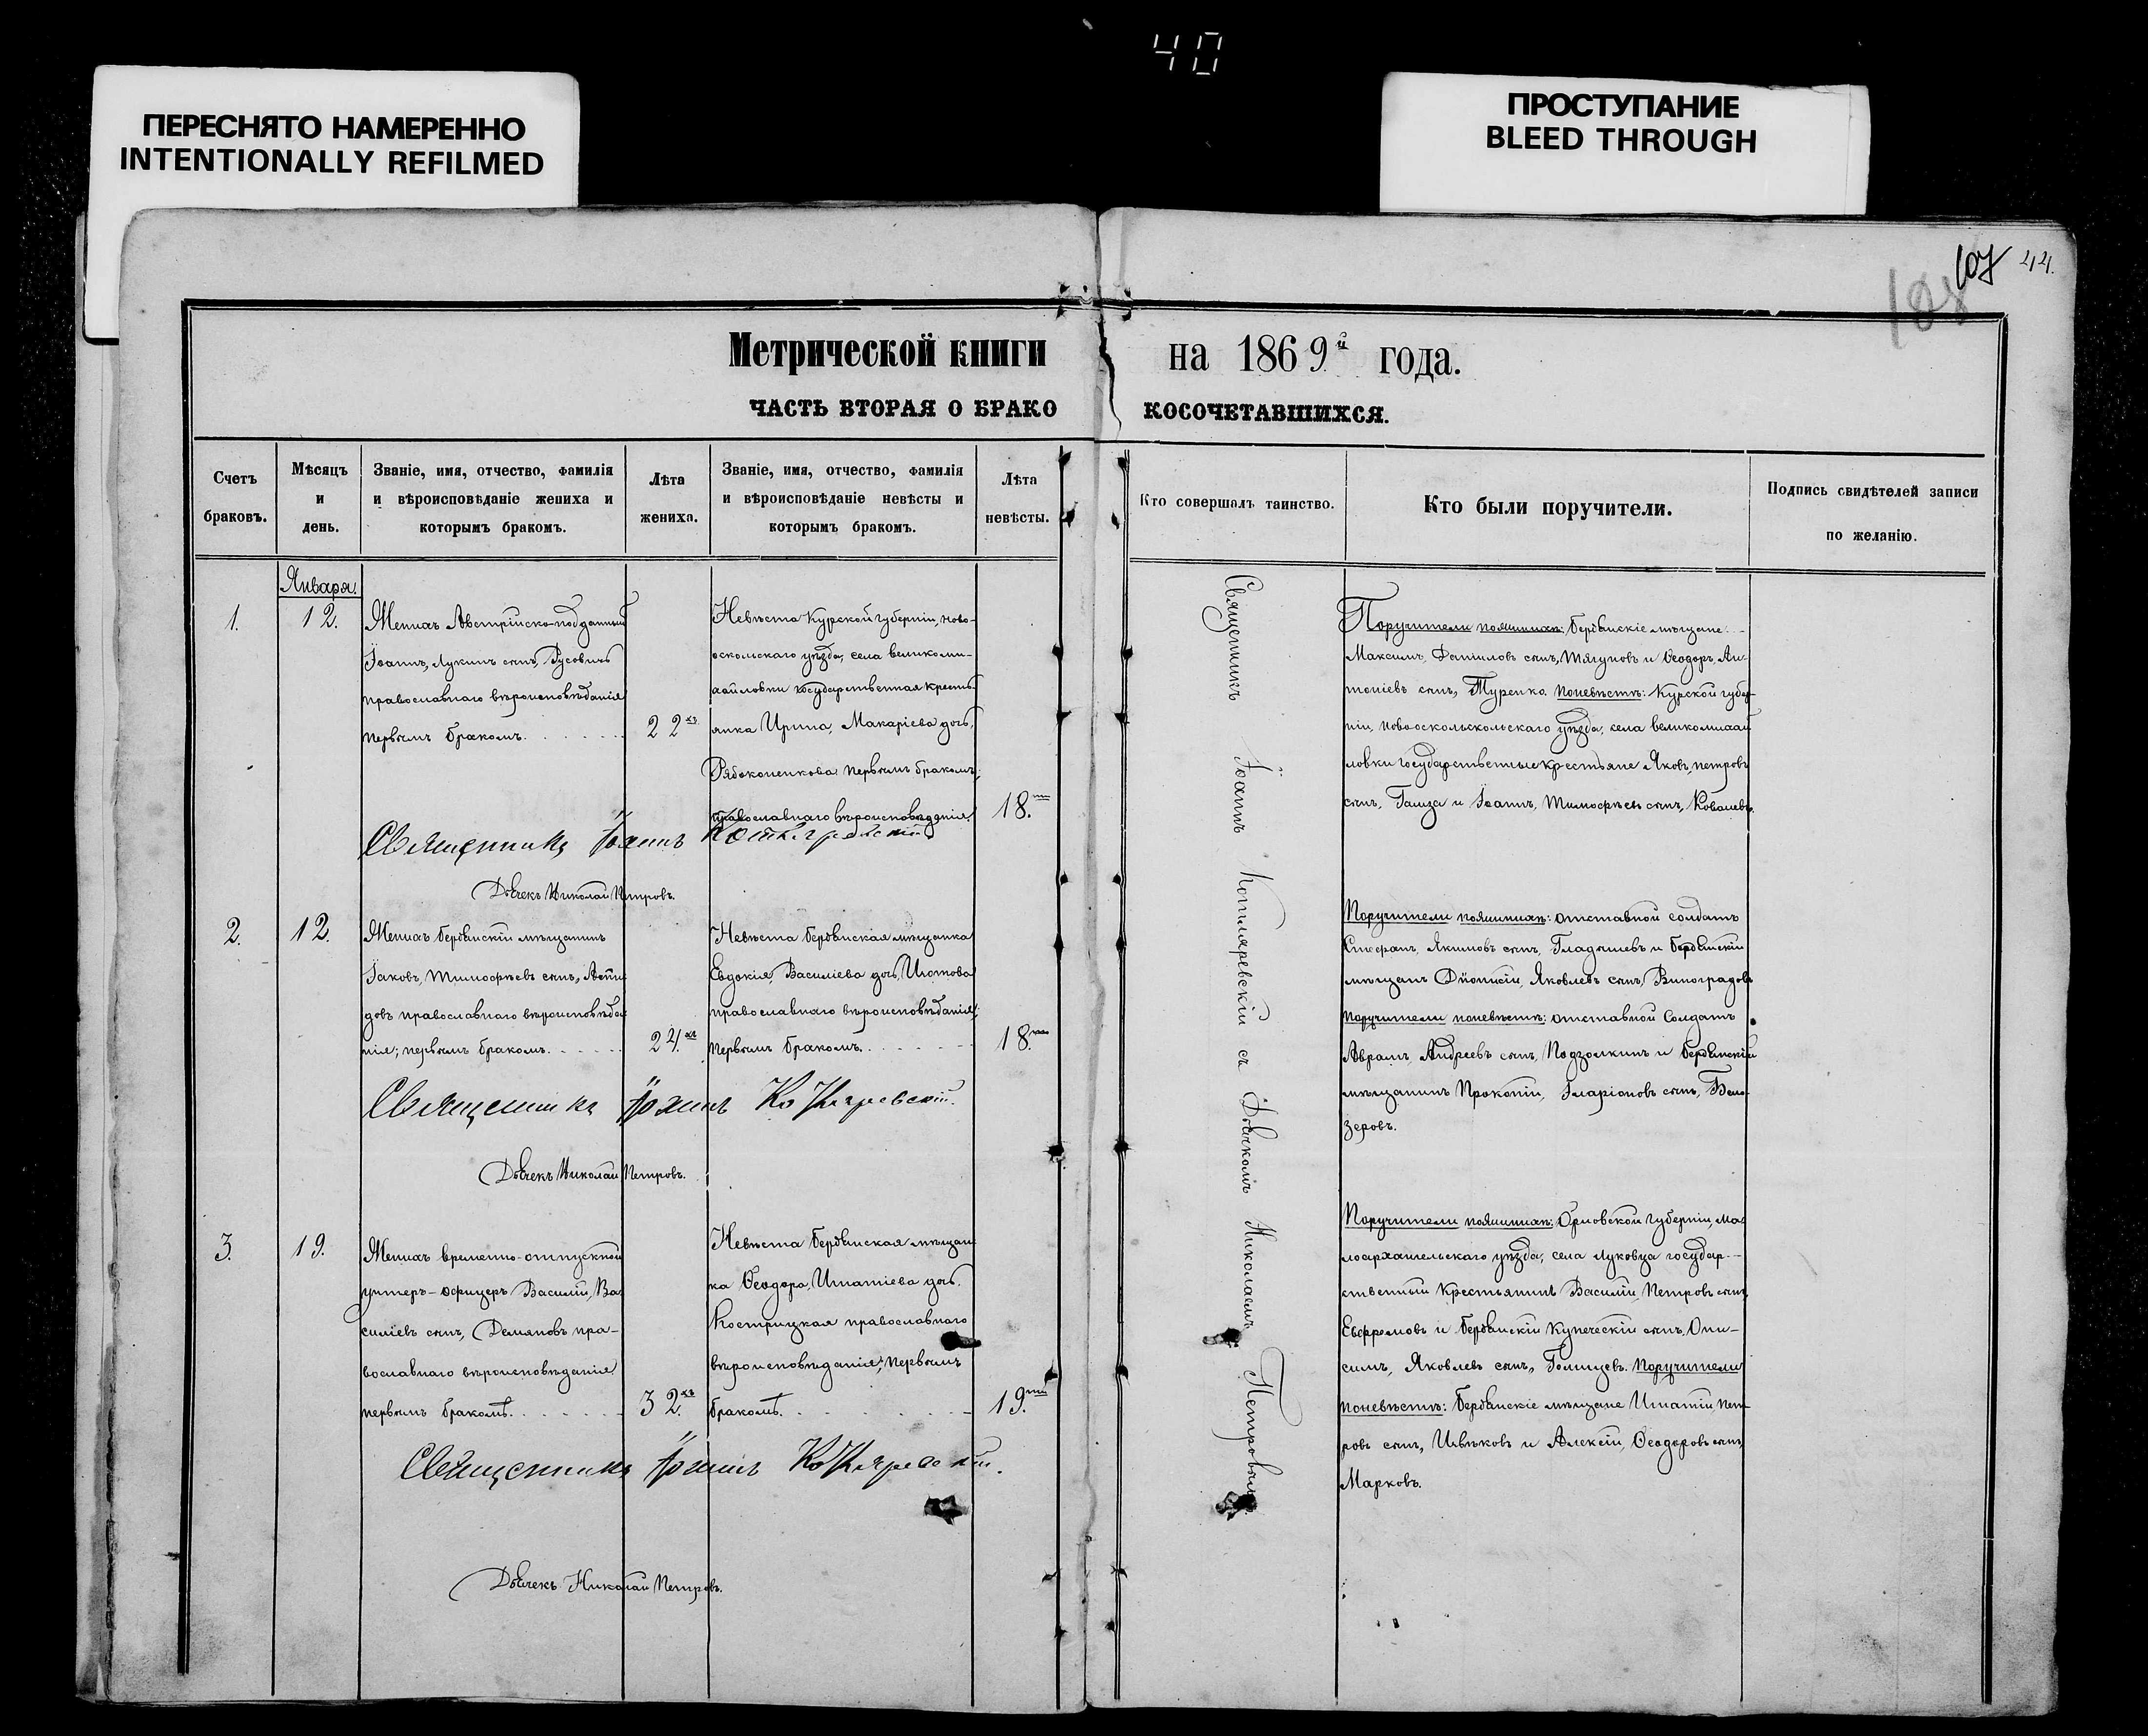 40
ПЕРЕСНЯТО НАМЕРЕННО
INTENTIONALLY REFILMED
ПРОСТУПАНИЕ
BLEED THROUGH
107 44.
Метрической книги на 1869й года.
ЧАСТЬ ВТОРАЯ О БРАКО КОСОЧЕТАВШИХСЯ.
Счетъ
браковъ.
Мѣсяцъ
и
день.
Званіе, имя, отчество, фамилія
и вѣроисповѣданіе жениха и
которымъ бракомъ.
Лѣта
жениха.
Званіе, имя, отчество, фамилія
и вѣроисповѣданіе невѣсты и
которымъ бракомъ.
Лѣта
невѣсты.
Кто совершалъ таинство.
Кто были поручители.
Подпись свидѣтелей записи
по желанію.
Января.
1.
12.
Женихъ Австрійско-подданный
Іоаннъ, Лукинъ сынъ, Русовичъ
православнаго вѣроисповѣданія
первымъ бракомъ.
22хъ
Невѣста Курской губерніи, ново-
оскольскаго уѣзда, села великоми-
хайловки государственная кресть-
янка Ирина, Макаріева дочь,
Рябоконенкова первымъ бракомъ;
православнаго вѣроисповѣданія.
18.ти
Священникъ Іоаннъ Котляревскій
Дьячекъ Николай Петровъ.
Священникъ Іоаннъ Котляревскій съ Дьячкомъ Николаемъ Петровымъ.
Поручители пожениху: Бердянскіе мѣщане
Максимъ, Даниловъ сынъ, Тягуновъ и Ѳеодоръ, Ан-
тоніевъ сынъ, Туренко. поневѣстѣ: Курской губер-
ніи, новооскольскольскаго уѣзда, села великомихай
ловки государственные крестьяне Яковъ, петровъ
сынъ, и Іоаннъ, Тимофѣевъ сынъ, Ковалевъ.
2.
12.
Женихъ бердянскій мѣщанинъ
Іаковъ, Тимофѣевъ сынъ,
довъ православнаго вѣроисповѣда
нія; первымъ бракомъ.
24.хъ
Невѣста бердянская мѣщанка
Евдокія, Василіева дочь,
православнаго вѣроисповѣданія;
первымъ бракомъ.
18.ти
Священникъ Іоаннъ Котляревскій.
Дьячекъ Николай Петровъ.
Поручители пожениху: отставной солдатъ
Стефанъ, Якимовъ сынъ, Гладышевъ и бердянскій
мѣщанъ Діонисій, Яковлевъ сынъ, Виноградовъ
поручители поневѣстѣ: отставной Солдатъ
Аврамъ, Андреевъ сынъ, Подзолкинъ и бердянскій
мѣщанинъ Прокопій, Иларіоновъ сынъ, Бело-
зеровъ.
3.
19.
Женихъ временно-отпускной
унтеръ-офицеръ Василій, Ва-
силіевъ сынъ, Демяновъ пра-
вославнаго вѣроисповѣданія
первымъ бракомъ.
32.хъ
Невѣста бердянская мѣщан
ка Ѳеодора, Игнатіева дочь,
Кострицкая православнаго
вѣроисповѣданія; первымъ
бракомъ.
19.ти
Священникъ Іоаннъ Котляревскій.
Дьячекъ Николай Петровъ.
Поручители пожениху: Орловской губерніи, Ма-
лоархангельскаго уѣзда, села луковца государ-
ственный крестьянинъ Василій, Петровъ сынъ,
Евфремовъ и бердянскій купеческій сынъ, Они-
симъ, Яковлевъ сынъ, Голицевъ. поручители
поневѣстѣ: бердянскіе мѣщане Игнатій, пет-
ровъ сынъ, Ивѣковъ и Алексій, Ѳеодоровъ сынъ,
Марковъ.